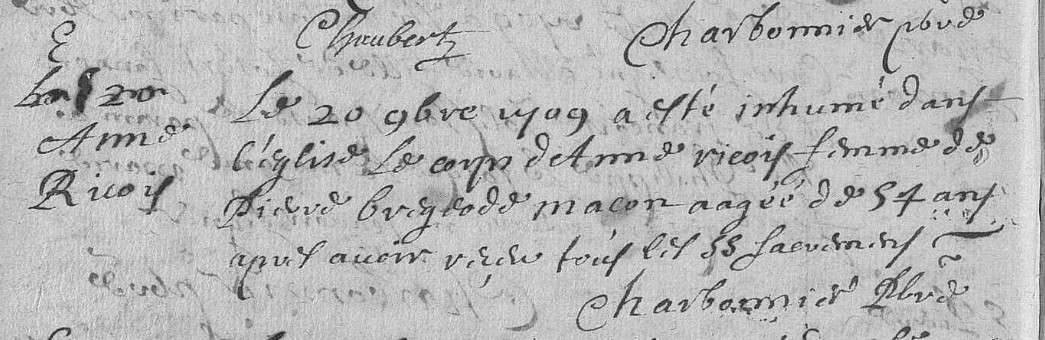 Chaubert Charbonnier pbre
E
20
Anne
Ricois
Le 20 9bre 1709 a esté inhumé dans
l'église le corps d'Anne ricois femme de
Pierre macon aagéé de 54 ans
apres avoir réceu tous les SS sacremens
Charbonnier Pbre